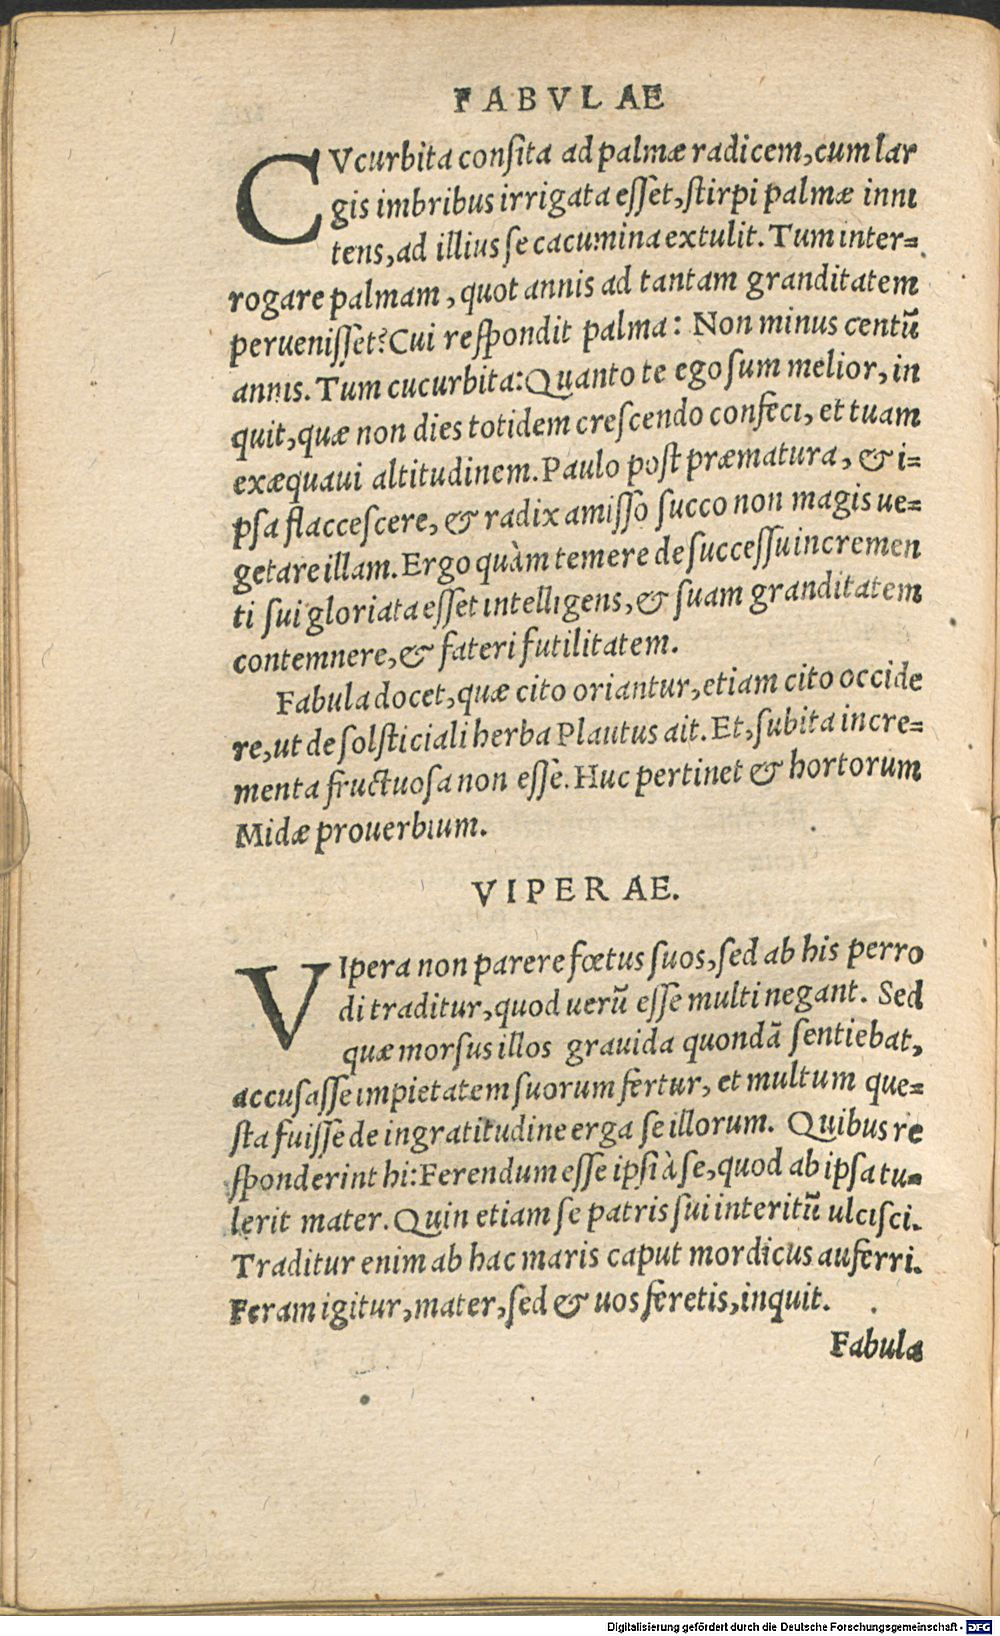 FABVLAE
CVcurbita consita ad palmæ radicem, cum lar
gis imbribus irrigata esset, stirpi palmæ inni
tens, ad illius se cacumina extulit. Tum inter=
rogare palmam, quot annis ad tantam granditatem
peruenisset? Cui respondit palma: Non minus centũ
annis. Tum cucurbita: Quanto te ego sum melior, in
quit, quæ non dies totidem crescendo confeci, et tuam
exæquaui altitudinem. Paulo post præmatura, & i=
psa flaccescere, & radix amisso succo non magis ue=
getare illam. Ergo quàm temere de successu incremen
ti sui gloriata esset intelligens, & suam granditatem
contemnere, & fateri futilitatem.
Fabula docet, quæ cito oriantur, etiam cito occide
re, ut de solsticiali herba Plautus ait. Et, subita incre=
menta fructuosa non esse. Huc pertinet & hortorum
Midæ prouerbium.
VIPERAE.
VIpera non parere fœtus suos, sed ab his perro
di traditur, quod uerũ esse multi negant. Sed
quæ morsus illos grauida quondã sentiebat,
accusasse impietatem suorum fertur, et multum que=
sta fuisse de ingratitudine erga se illorum. Quibus re
sponderint hi: Ferendum esse ipsi à se, quod ab ipsa tu=
lerit mater. Quin etiam se patris sui interitũ ulcisci.
Traditur enim ab hac maris caput mordicus auferri.
Feram igitur, mater, sed & uos feretis, inquit.
Fabula
Digitalisierung gefördert durch die Deutsche Forschungsgemeinschaft - DFG